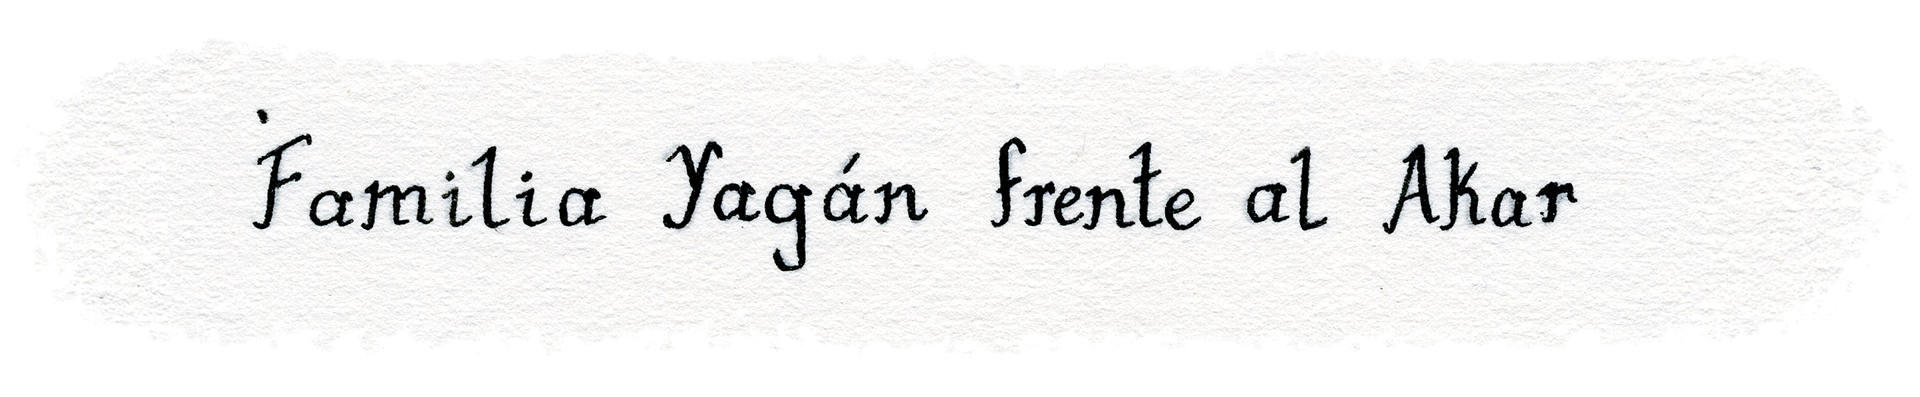 Familia Yagán frente al Akar